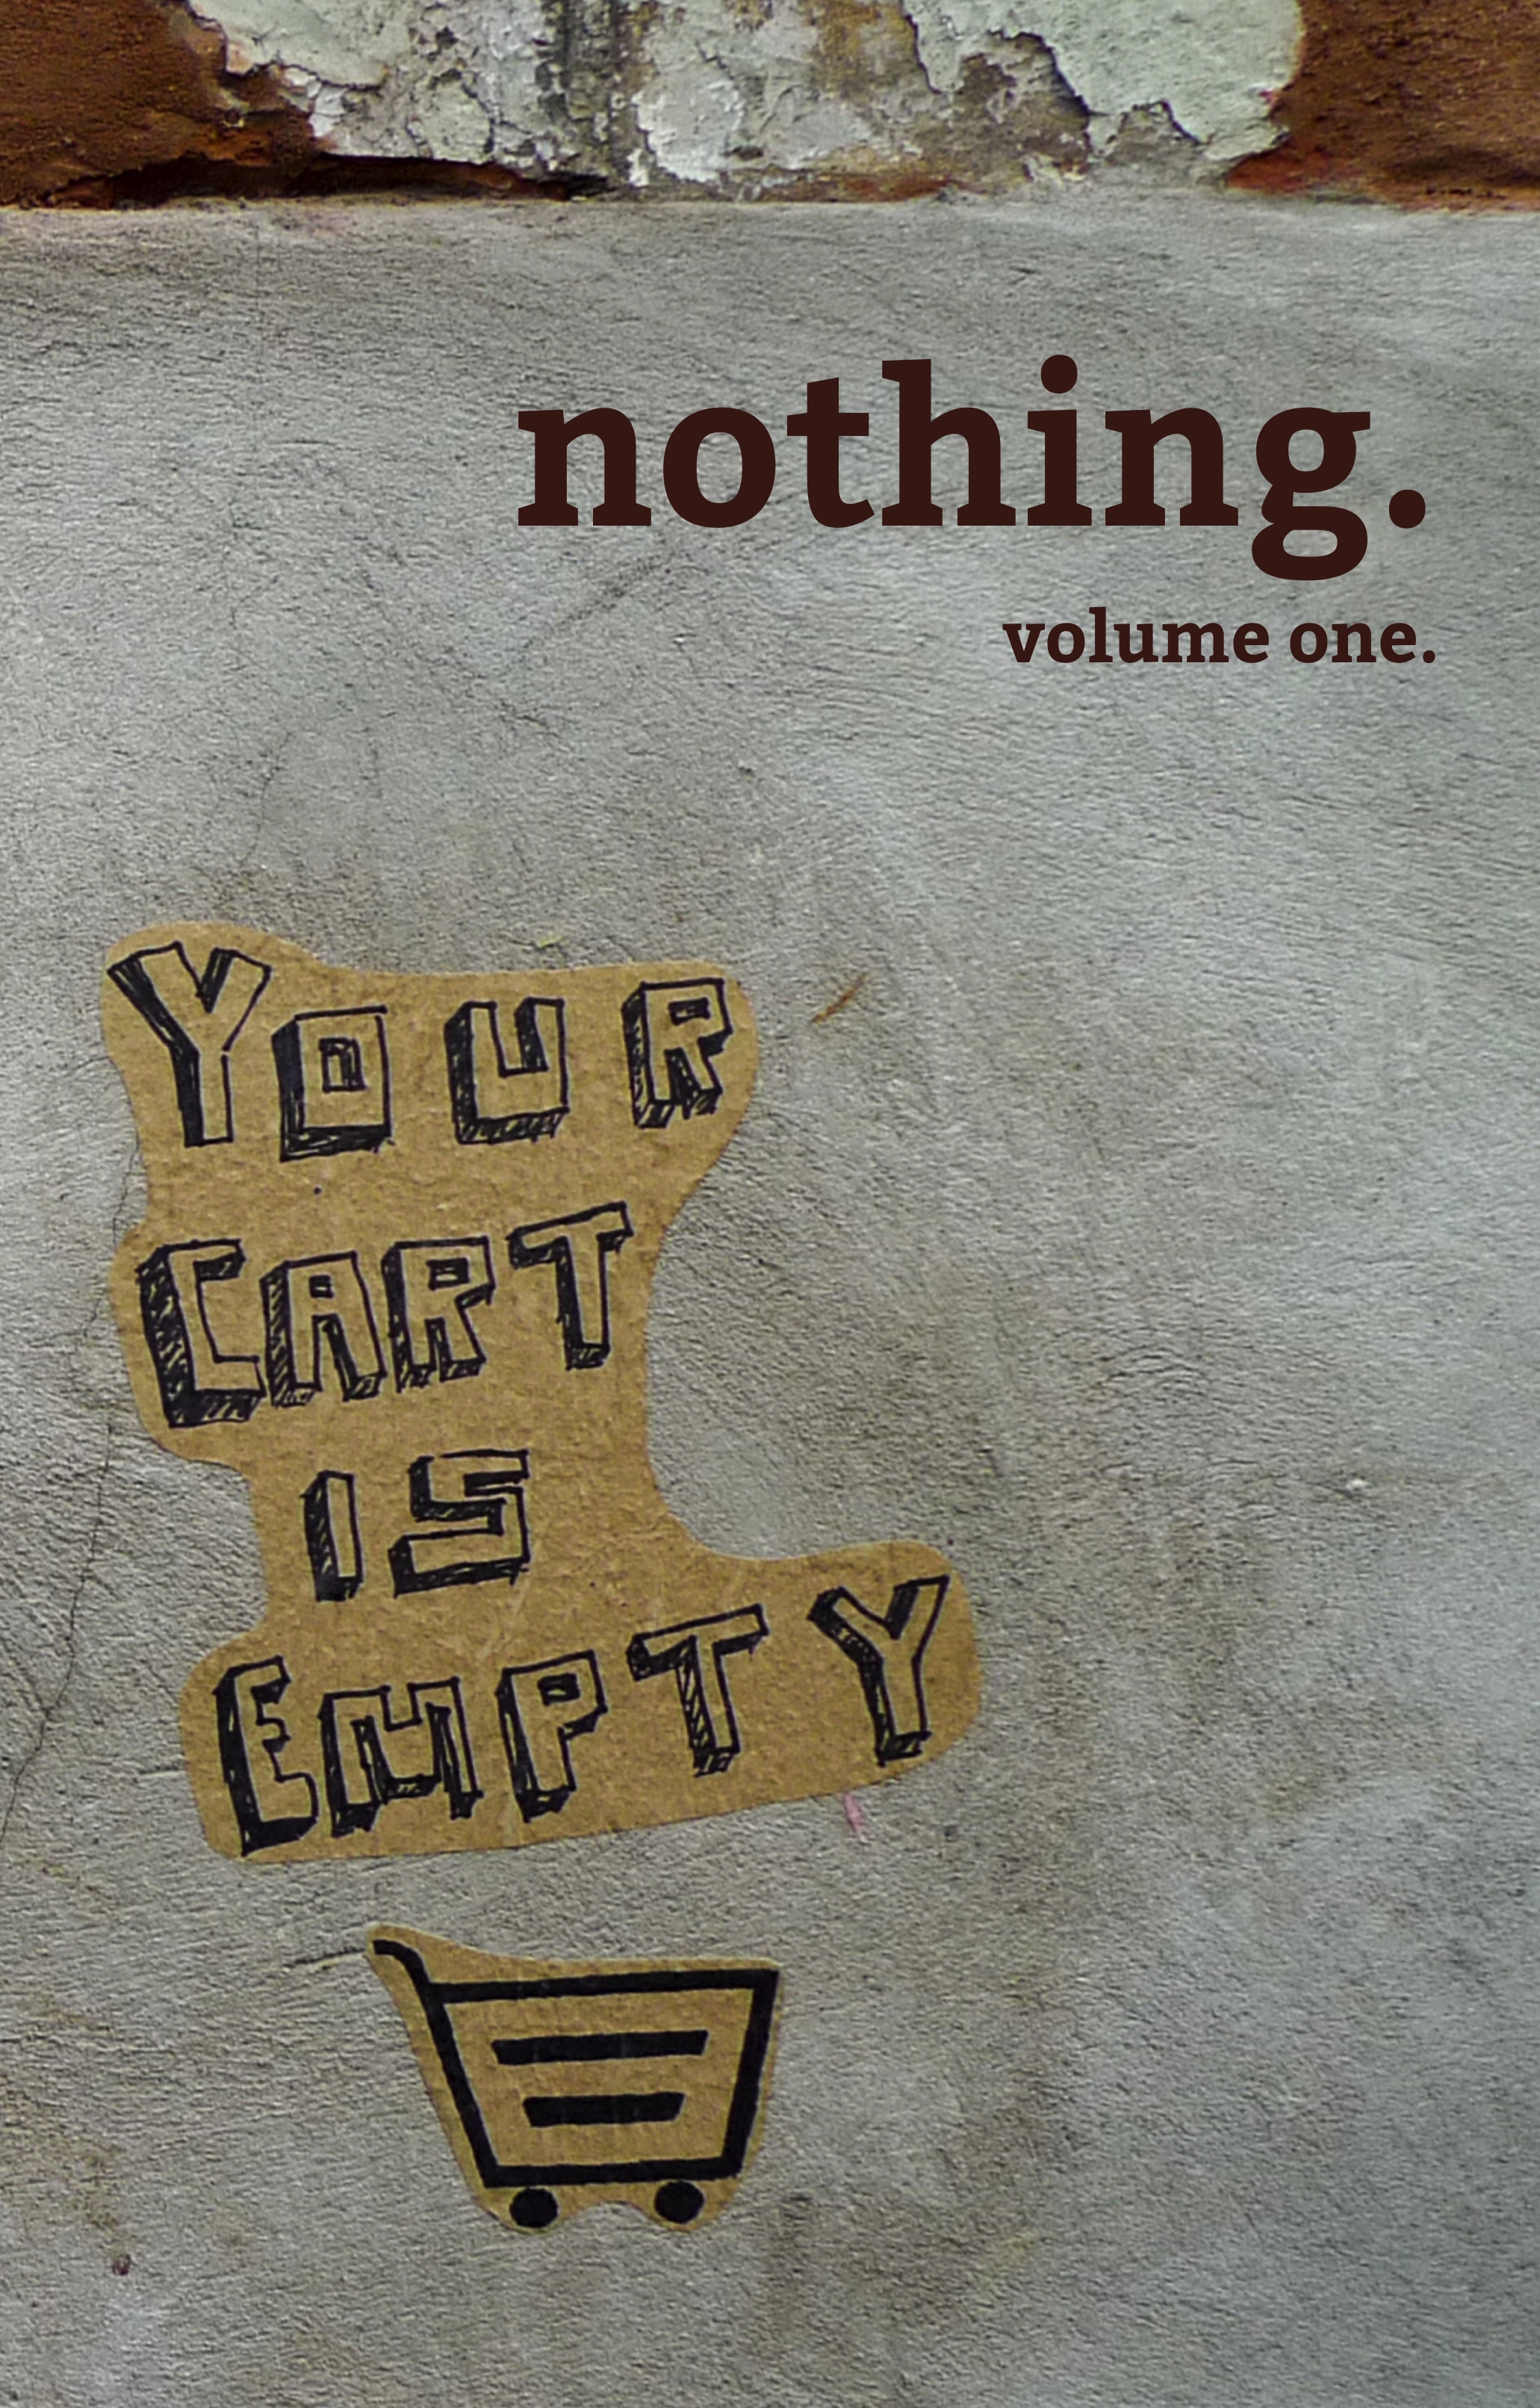 nothing.
volume one.
YOUR
CART
IS
EMPTY